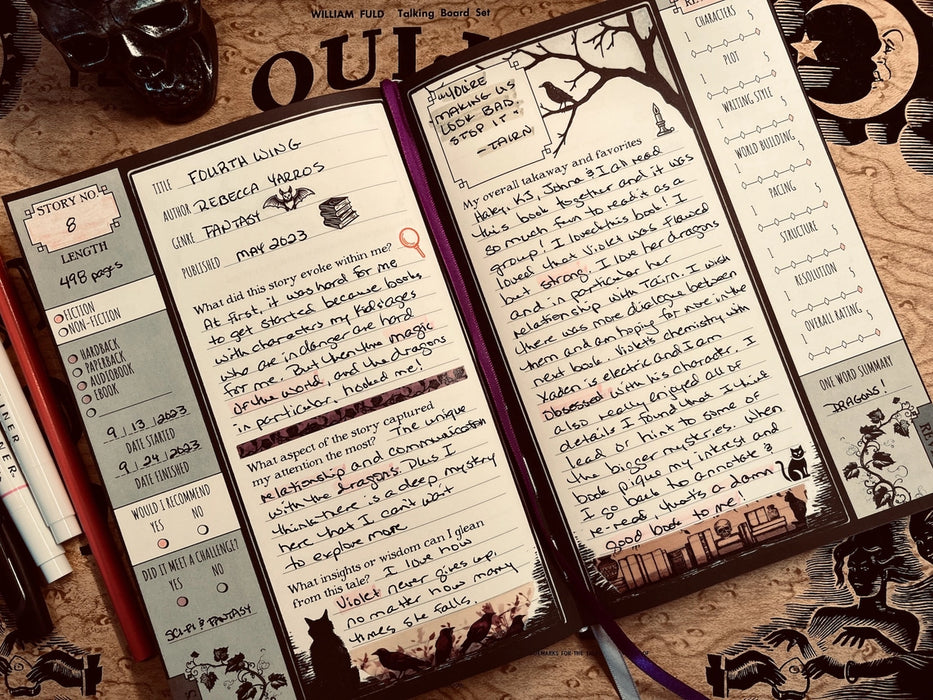 WILLIAM FULD Talking Board Set
OUIJ
STORY NO.
8
LENGTH
498 pages
FICTION
NON-FICTION
HARDBACK
PAPERBACK
AUDIOBOOK
EBOOK
9/13/2023
DATE STARTED
9/24/2023
DATE FINISHED
WOULD I RECOMMEND
YES NO
DID IT MEET A CHALLENGE?
YES NO
SCI-FI & FANTASY
TITLE FOURTH WING
AUTHOR REBECCA YARROS
GENRE FANTASY
PUBLISHED MAY 2023
What did this story evoke within me?
At first, it was hard for me
to get started because books
with characters my kids ages
who are in danger are hard
for me. But then the magic
of the world, and the dragons
in particular, hooked me!
What aspect of the story captured
my attention the most? The unique
relationship and communication
with the dragons. Plus I
think there is a deep mystery
here that I can't wait
to explore more
What insights or wisdom can I glean
from this tale? I love how
Violet never gives up,
no matter how many
times she falls.
"YOU'RE
MAKING US
LOOK BAD.
STOP IT"
- TAIRN
My overall takaway and favorites
Haley, KJ, Johna & I all read
this book together and it was
so much fun to read it as a
group! I loved this book! I
loved that Violet was flawed
but strong. I love her dragons
and in particular her
relationship with Tairn. I wish
there was more dialogue between
them and am hoping for more in the
next book. Violet's chemistry with
Xaden is electric and I am
Obsessed with his character. I
also really enjoyed all of
details I found that I think
lead or hint to some of
the bigger mysteries. When
book pique my intrest and
I go back to annotate &
re-read, that's a damn
good book to me!
CHARACTERS
1 5
PLOT
1 5
WRITING STYLE
1 5
WORLD BUILDING
1 5
PACING
1 5
STRUCTURE
1 5
RESOLUTION
1 5
OVERALL RATING
1 5
ONE WORD SUMMARY
DRAGONS!